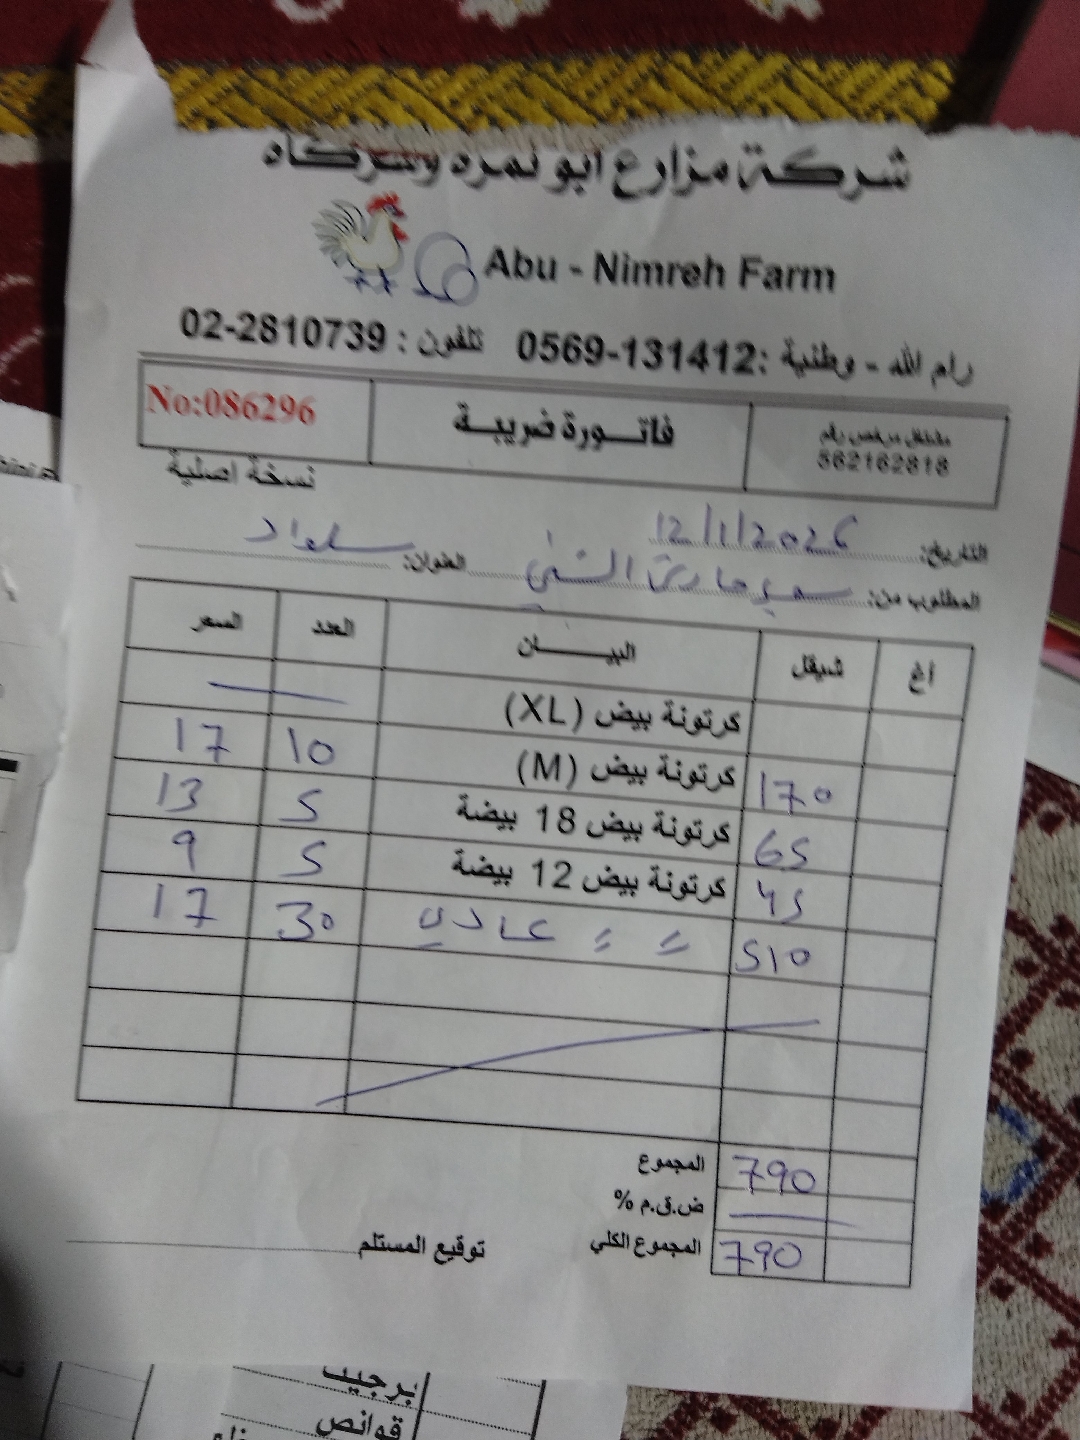 شركة مزارع ابو نمره وشركاه
Abu - Nimreh Farm
رام الله - وطنية :0569-131412 تلفون : 02-2810739
مشتغل مرخص رقم
562162818
فاتـــورة ضريبـة
No:086296
نسخة اصلية
التاريخ: 12/1/2026
المطلوب من: سوبر ماركت العنوان: سلواد
أغ شيقل البيـــــان العدد السعر
كرتونة بيض (XL)
170 كرتونة بيض (M) 10 17
65 كرتونة بيض 18 بيضة 5 13
45 كرتونة بيض 12 بيضة 5 9
510 = = عادي 30 17
المجموع 790
ض.ق.م %
المجموع الكلي 790
توقيع المستلم
برجيت
قوانص